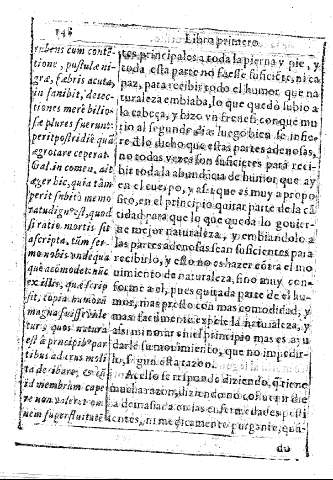 146
Libro primero.
rubens cum conte-
tione, pustulæ ni-
græ, fæbris acuta,
in sanibit, deiec-
tiones mere bilio-
sæ plures fuerunt:
perit postridiè quã
ægrotare ceperat
Gal. in comen. ait
æger hic, quia tàm
perit subitò memo
ratu dignus est, quod
si ratio mortis sit
ascripta, tùm ser-
mo nobis undequa
què acomodet: nũc
ex illis, quæ scrip
sit, copia humorũ
magna
tur, quos natura
est à principio par
tibus
ta deribare, &
id viembrum cape
re non valeret om
nem superfluitatẽ
tes principalos a toda la pierna y pie, y
toda esta parte no fuesse suficiẽte, ni ca
paz, para recibir todo el humor que na
turaleza embiaba, lo que quedò subio a
la cabeça, y hizo vn frenesi con que mu
rio al segundo dia: luego bien se infie-
re de lo dicho que estas partes adenosas,
no todas vezes son suficiẽtes para reci-
bir toda la abundãcia de humor que ay
en el cuerpo, y assi que es muy a propo
sito, en el principio quitar parte de la cã
tidad para que lo que queda lo gouier-
ne mejor naturaleza, y embiandolo a
las partes adenosas sean suficientes para
recibirlo, y esto no es hazer cõtra el mo
uimiento de naturaleza, sino muy con-
forme a el, pues quitada parte de el hu-
mor, mas presto con mas comodidad, y
mas facilmente expele la naturaleza, y
assi minorar en el principio mas es ayu
darle su mouimiento, que no impedir-
lo, segun esta razon.
A celso se responde diziendo, q̃ tiene
mucha razon, diziendo no
la demasiada en las enfermedades pesti
lentes, ni medicamento purgante, quã-
do